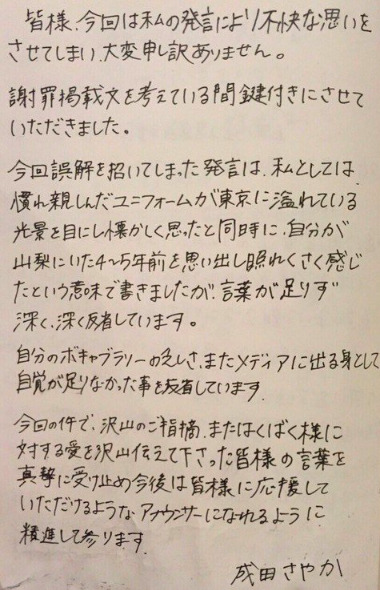 皆様、今回は私の発言により不快な思いを
させてしまい、大変申し訳ありません。
謝罪掲載文を考えている間鍵付きにさせて
いただきました。
今回誤解を招いてしまった発言は、私としては
慣れ親しんだユニフォームが東京に溢れている
光景を目にし懐かしく思ったと同時に、自分が
山梨にいた4〜5年前を思い出し照れくさく感じ
たという意味で書きましたが、言葉が足りず
深く、深く反省しています。
自分のボキャブラリーの乏しさ、またメディアに出る身として
自覚が足りなかった事を反省しています。
今回の件で、沢山のご指摘、またはくばく様に
対する愛を沢山伝えて下さった皆様の言葉を
真摯に受け止め今後は皆様に応援して
いただけるようなアナウンサーになれるように
精進して参ります。
成田さやか